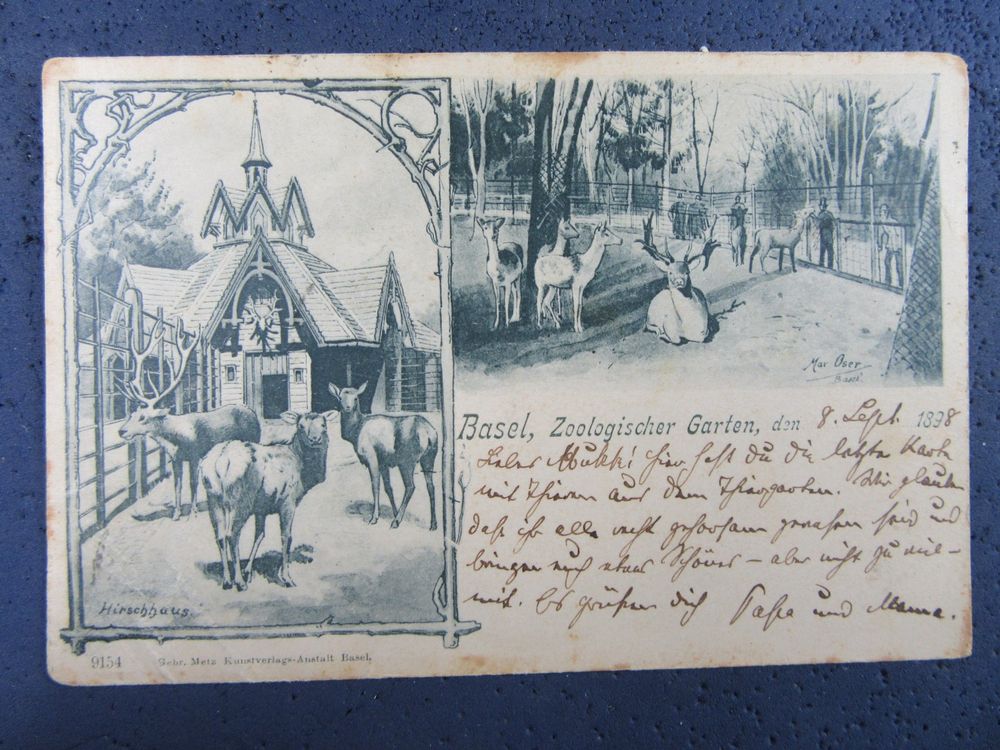 Mar Oser
Basel
Basel, Zoologischer Garten, den 8. Sept. 1898
Lieber Mukki! hier hast du die letzte Karte
mit Thieren aus dem Thiergarten. Wir glauben
daß ihr alle recht gehorsam gewesen seid und
bringen euch etwas Schönes – aber nicht zu viel –
mit. Es grüßen dich Papa und Mama.
Hirschhaus.
9154 Gebr. Metz Kunstverlags-Anstalt Basel.